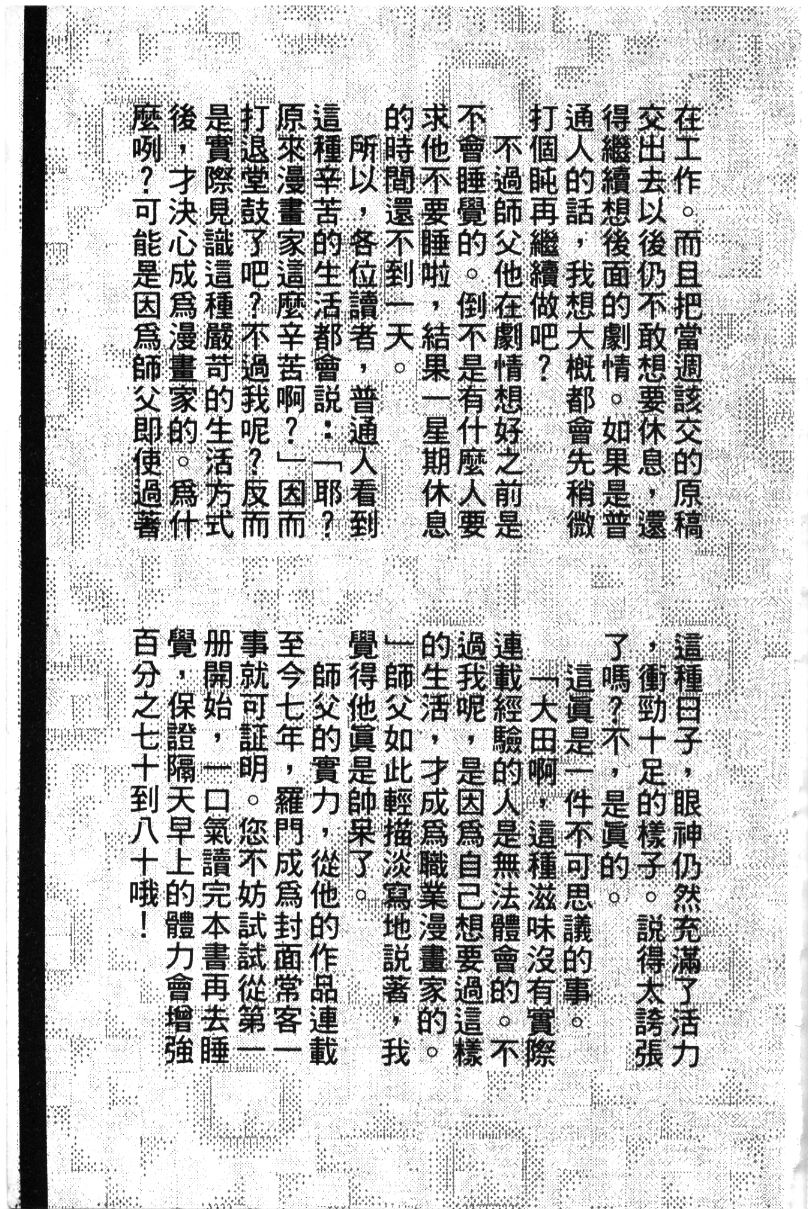 在工作。而且把當週該交的原稿
交出去以後仍不敢想要休息，還
得繼續想後面的劇情。如果是普
通人的話，我想大概都會先稍微
打個盹再繼續做吧？
不過師父他在劇情想好之前是
不會睡覺的。倒不是有什麼人要
求他不要睡啦，結果一星期休息
的時間還不到一天。
所以，各位讀者，普通人看到
這種辛苦的生活都會説：「耶？
原來漫畫家這麼辛苦啊？」因而
打退堂鼓了吧？不過我呢？反而
是實際見識這種嚴苛的生活方式
後，才決心成爲漫畫家的。爲什
麼咧？可能是因爲師父即使過著
這種日子，眼神仍然充滿了活力
，衝勁十足的樣子。説得太誇張
了嗎？不，是眞的。
這眞是一件不可思議的事。
「大田啊，這種滋味沒有實際
連載經驗的人是無法體會的。不
過我呢，是因爲自己想要過這樣
的生活，才成爲職業漫畫家的。
」師父如此輕描淡寫地説著，我
覺得他眞是帥呆了。
師父的實力，從他的作品連載
至今七年，羅門成爲封面常客一
事就可証明。您不妨試試從第一
册開始，一口氣讀完本書再去睡
覺，保證隔天早上的體力會增強
百分之七十到八十哦！